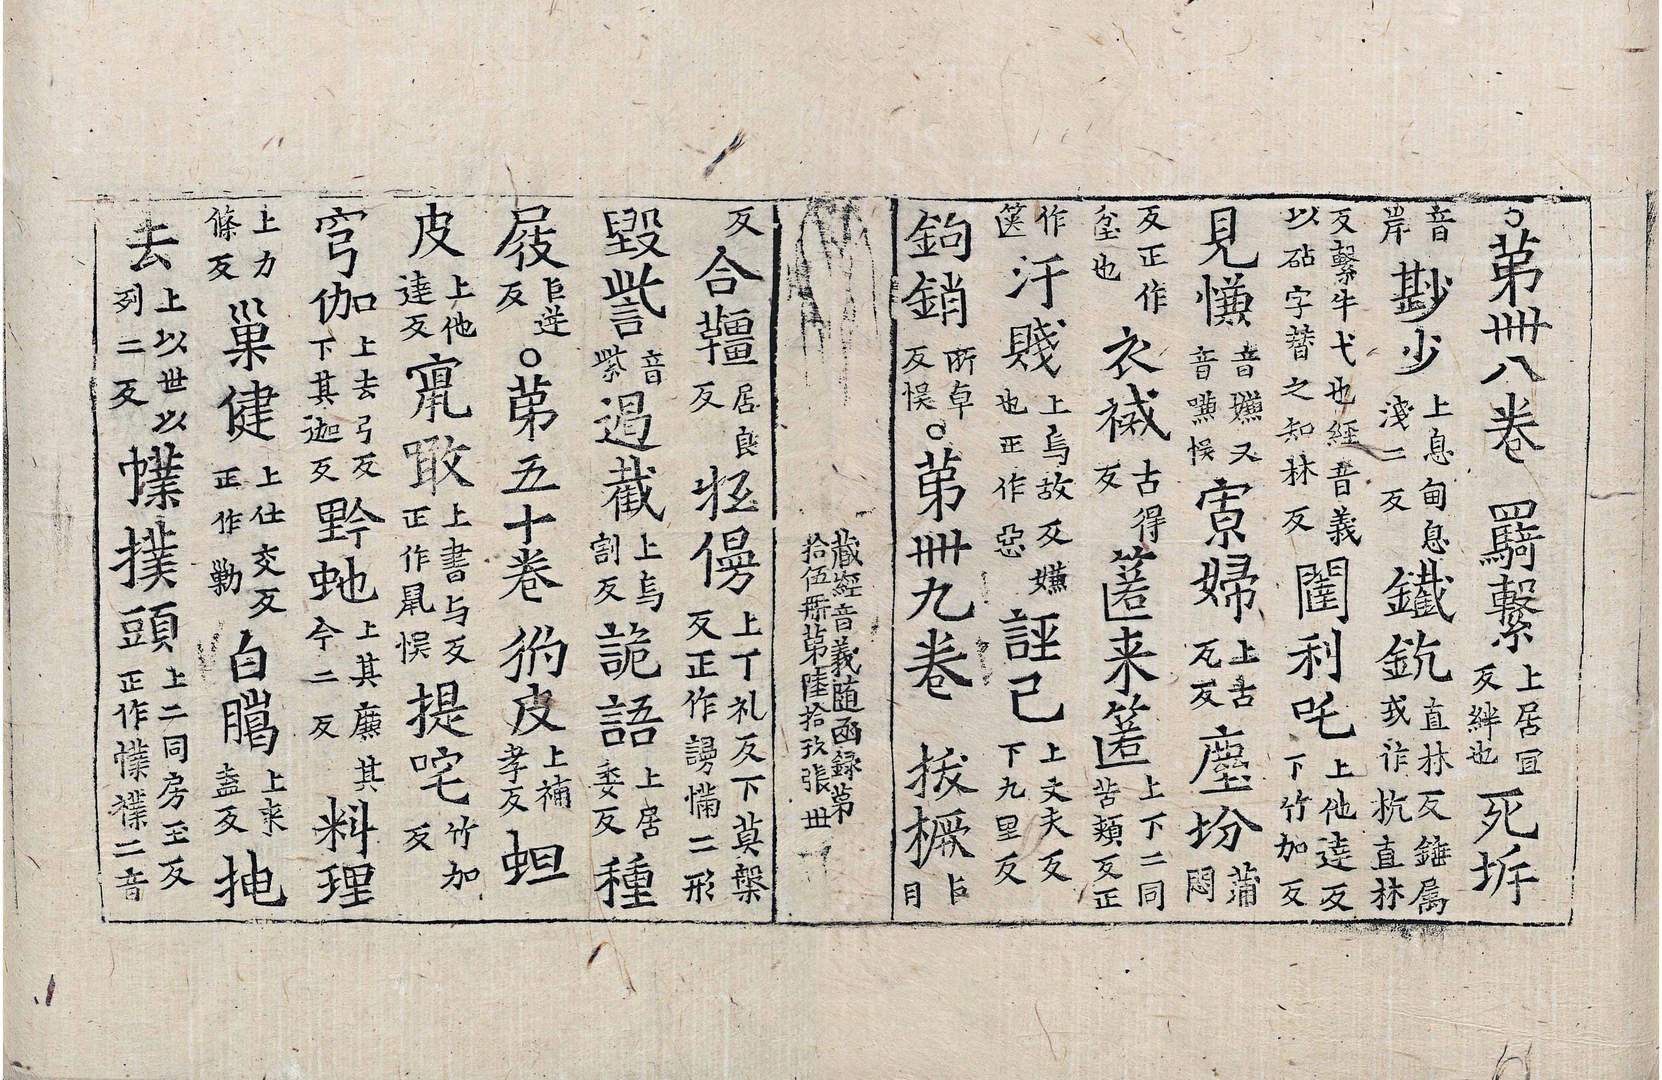 ○苐卌八卷 䩭繫上居冝反絆也 死坼
音岸 尠少上息甸息淺二反 鐵鈂直林反鍤属或作杭直林
反繫牛弋也経音義以砧字替之知林反 闥利吒上他逹反下竹加反
見慊音孅又音嚥悮 寡婦上古瓦反 塵坋蒲悶
反正作坌也 衣裓古得反 匿来匿上下二同苦頬反正
作箧 汙賎上烏故反嬚也正作惡 誣己上文夫反下九里反
鉤銷所卓反悮○苐卌九卷 拔橛上目
藏経音義随函録苐拾伍冊苐陸拾玖張 丗
反 合韁居良反 𢪛㑽上丁礼反下莫槃反正作謾慲二形
毀訾音紫 遏截上烏割反 詭語上居委反 種
屐巨逆反○苐五十卷 豹皮上補孝反 蛆
皮上他逹反 䆿敢上書与反正作鼠悮 提咤竹加反
穹伽上去弓反下其迦反 黔虵上其廉其今二反 料理
上力條反 巢健上仕交反正作勦 白𦡱上来盍反 抴
去上以世以列二反 幞撲頭上二同房玉反正作幞襆二音